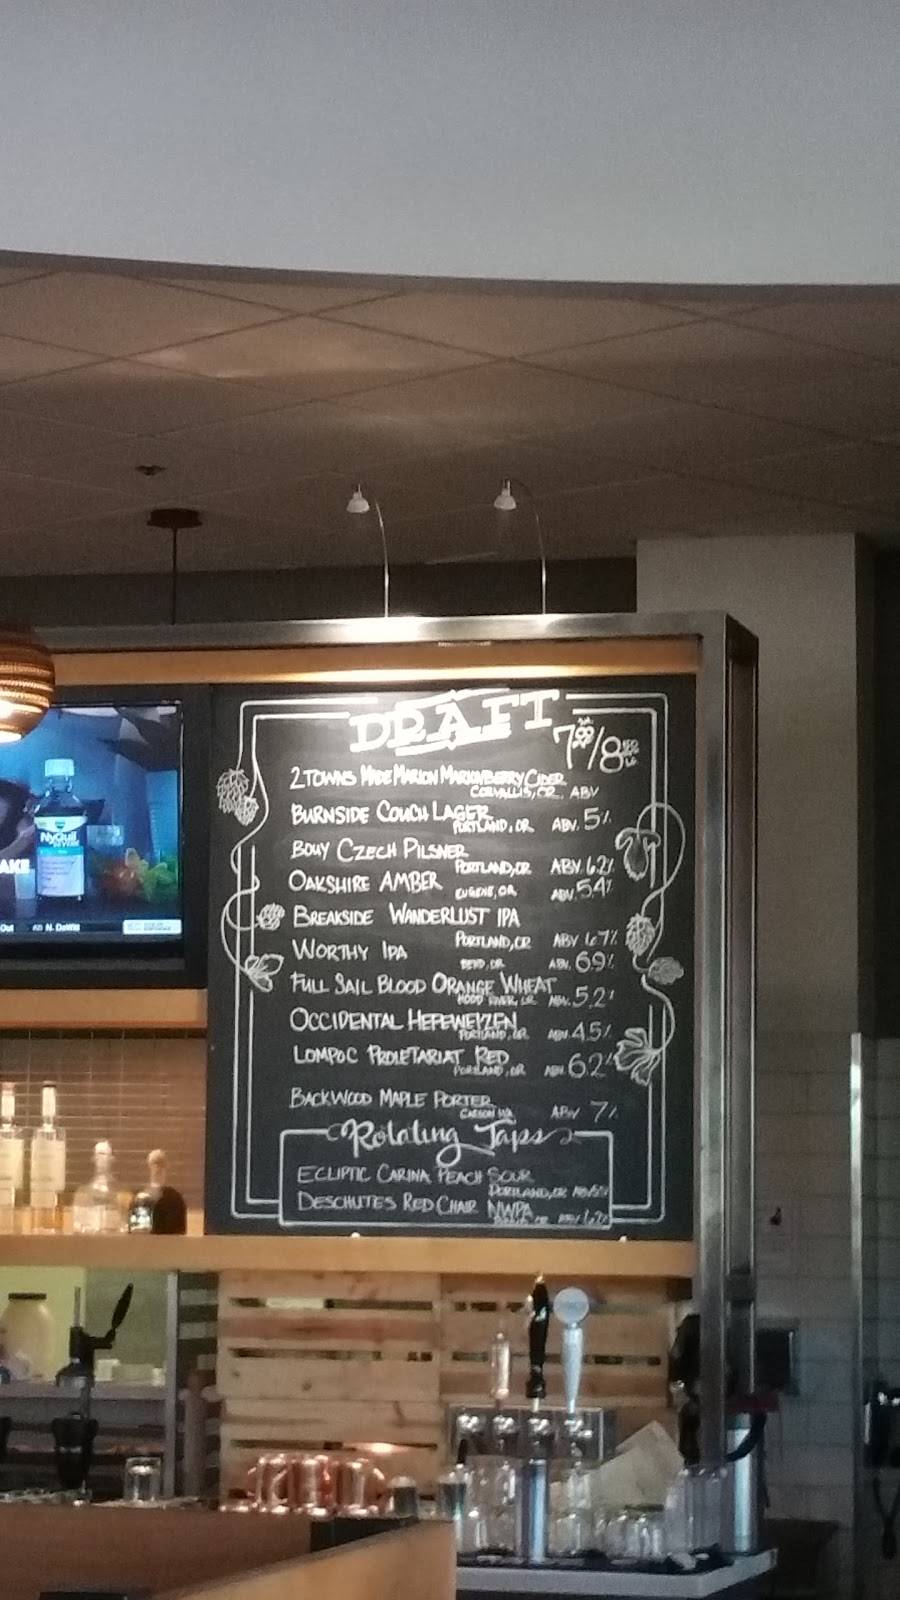 DRAFT
7 /8
2 TOWNS MADE MARION MARIONBERRY CIDER
CORVALLIS, OR ABV
BURNSIDE COUCH LAGER
PORTLAND, OR ABV. 5%
BOUY CZECH PILSNER
PORTLAND, OR ABV. 6.2%
OAKSHIRE AMBER EUGENE, OR ABV. 5.4%
BREAKSIDE WANDERLUST IPA
PORTLAND, OR ABV 6.7%
WORTHY IPA BEND, OR ABV. 6.9%
FULL SAIL BLOOD ORANGE WHEAT
HOOD RIVER, OR ABV. 5.2%
OCCIDENTAL HEFEWEIZEN
PORTLAND, OR ABV. 4.5%
LOMPOC PROLETARIAT RED
PORTLAND, OR ABV. 6.2%
BACKWOOD MAPLE PORTER
CARSON WA ABV 7%
Rotating Taps
ECLIPTIC CARINA PEACH SOUR
PORTLAND, OR ABV
DESCHUTES RED CHAIR NWPA
ABV
NyQuil
SEVERE
AKE
Out AB N. DeWitt